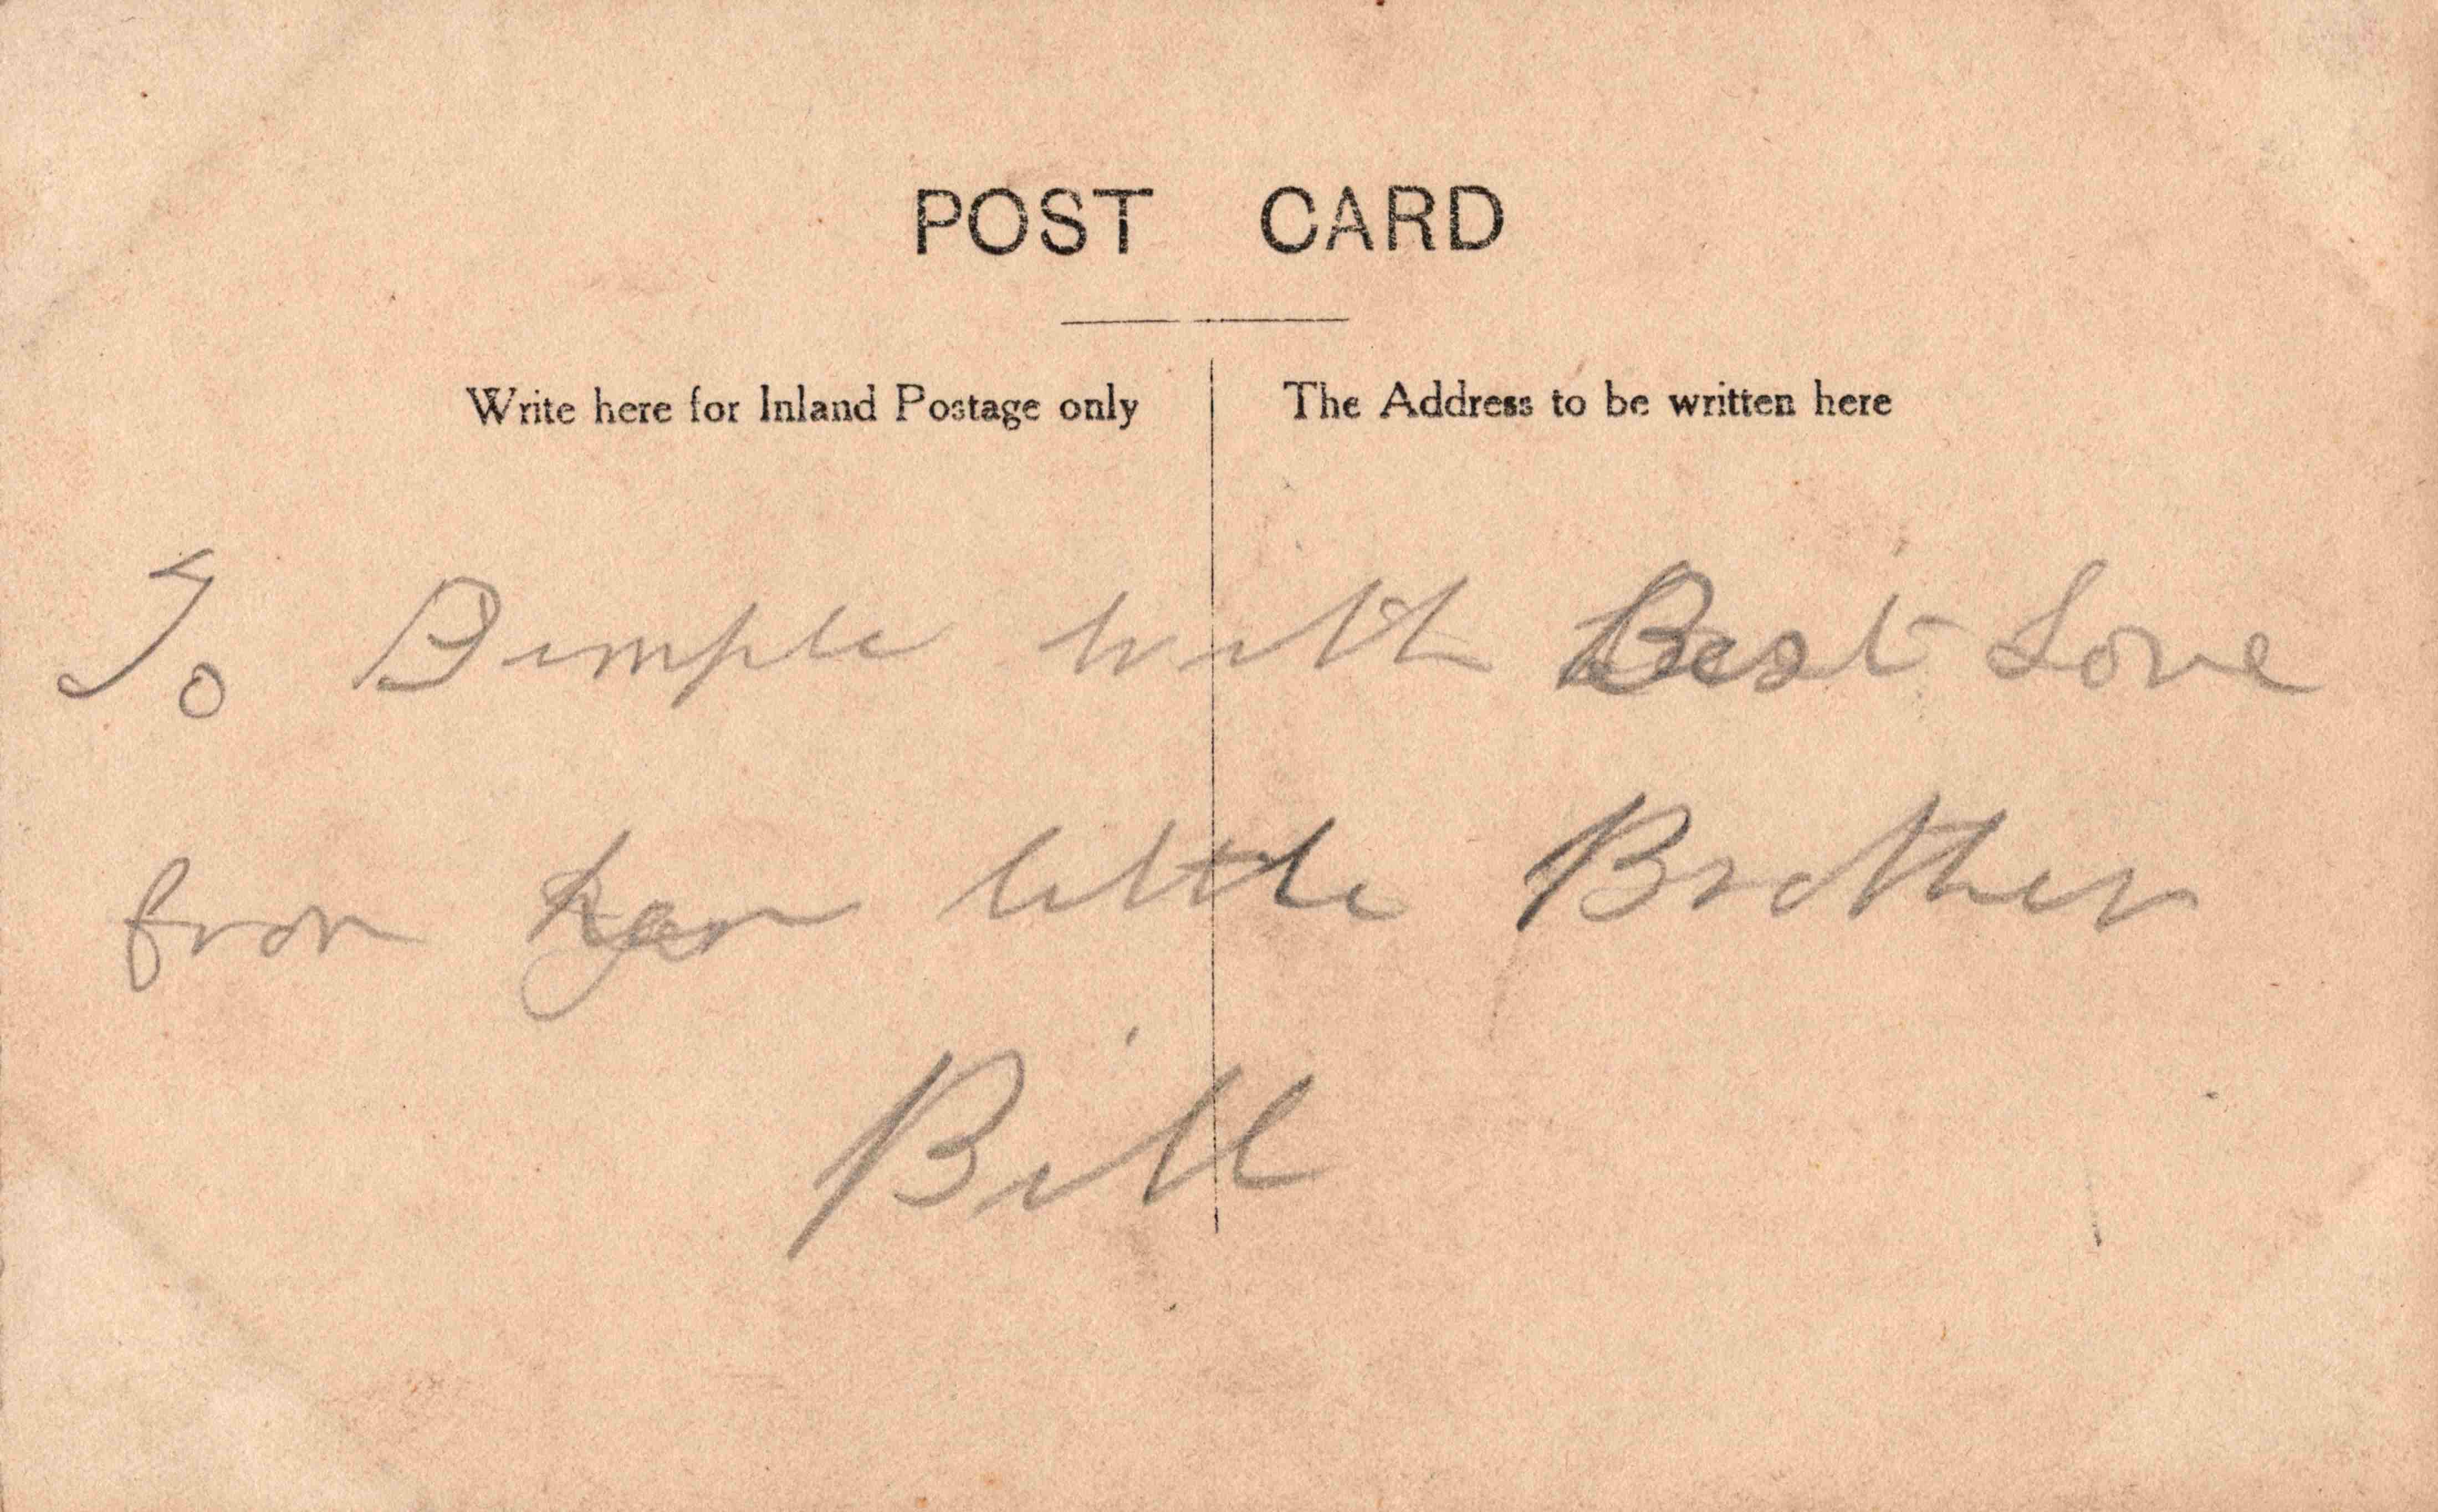 POST CARD
Write here for Inland Postage only
The Address to be written here
To Dimple with Best Love
from little Brother
Bill